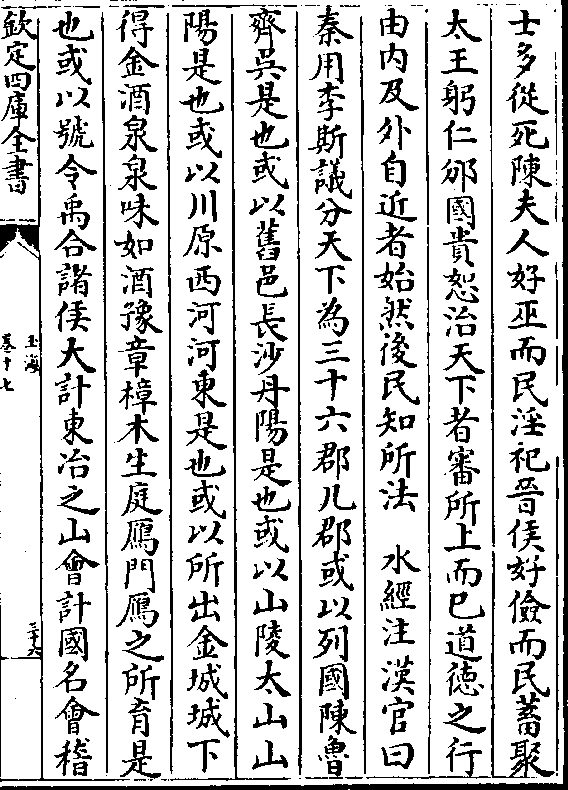 士多從死陳夫人好巫而民淫祀晉侯好儉而民蓄聚
太王躬仁邠國貴恕治天下者審所上而已道德之行
由内及外自近者始然後民知所法　水經注漢官曰
秦用李斯議分天下為三十六郡凡郡或以列國陳魯
齊吳是也或以舊邑長沙丹陽是也或以山陵太山山
陽是也或以川原西河河東是也或以所出金城城下
得金酒泉泉味如酒豫章樟木生庭鴈門鴈之所育是
也或以號令禹合諸侯大計東冶之山會計國名會稽
欽定四庫全書
玉海
卷十七
三十六